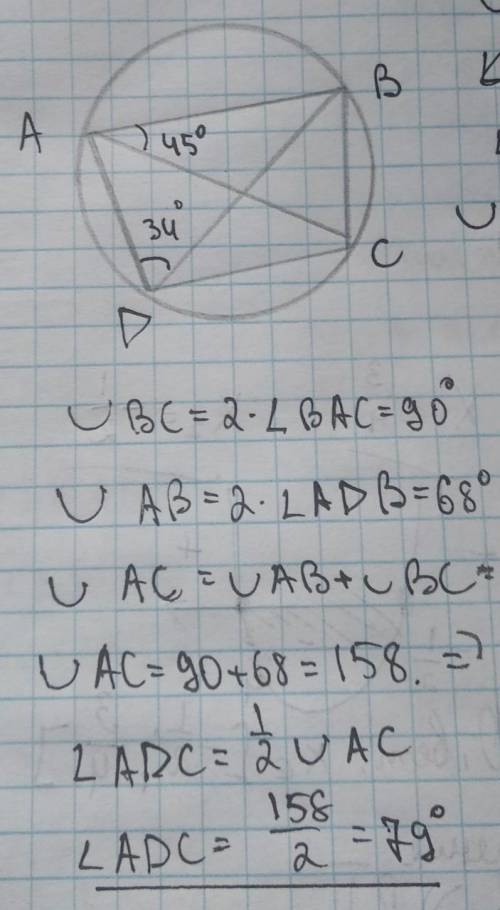 B
A
45°
34°
C
D
∪ BC = 2·∠BAC = 90°
∪ AB = 2·∠ADB = 68°
∪ AC = ∪AB + ∪BC =
∪ AC = 90 + 68 = 158. =>
∠ADC = 1/2 ∪ AC
∠ADC = 158/2 = 79°